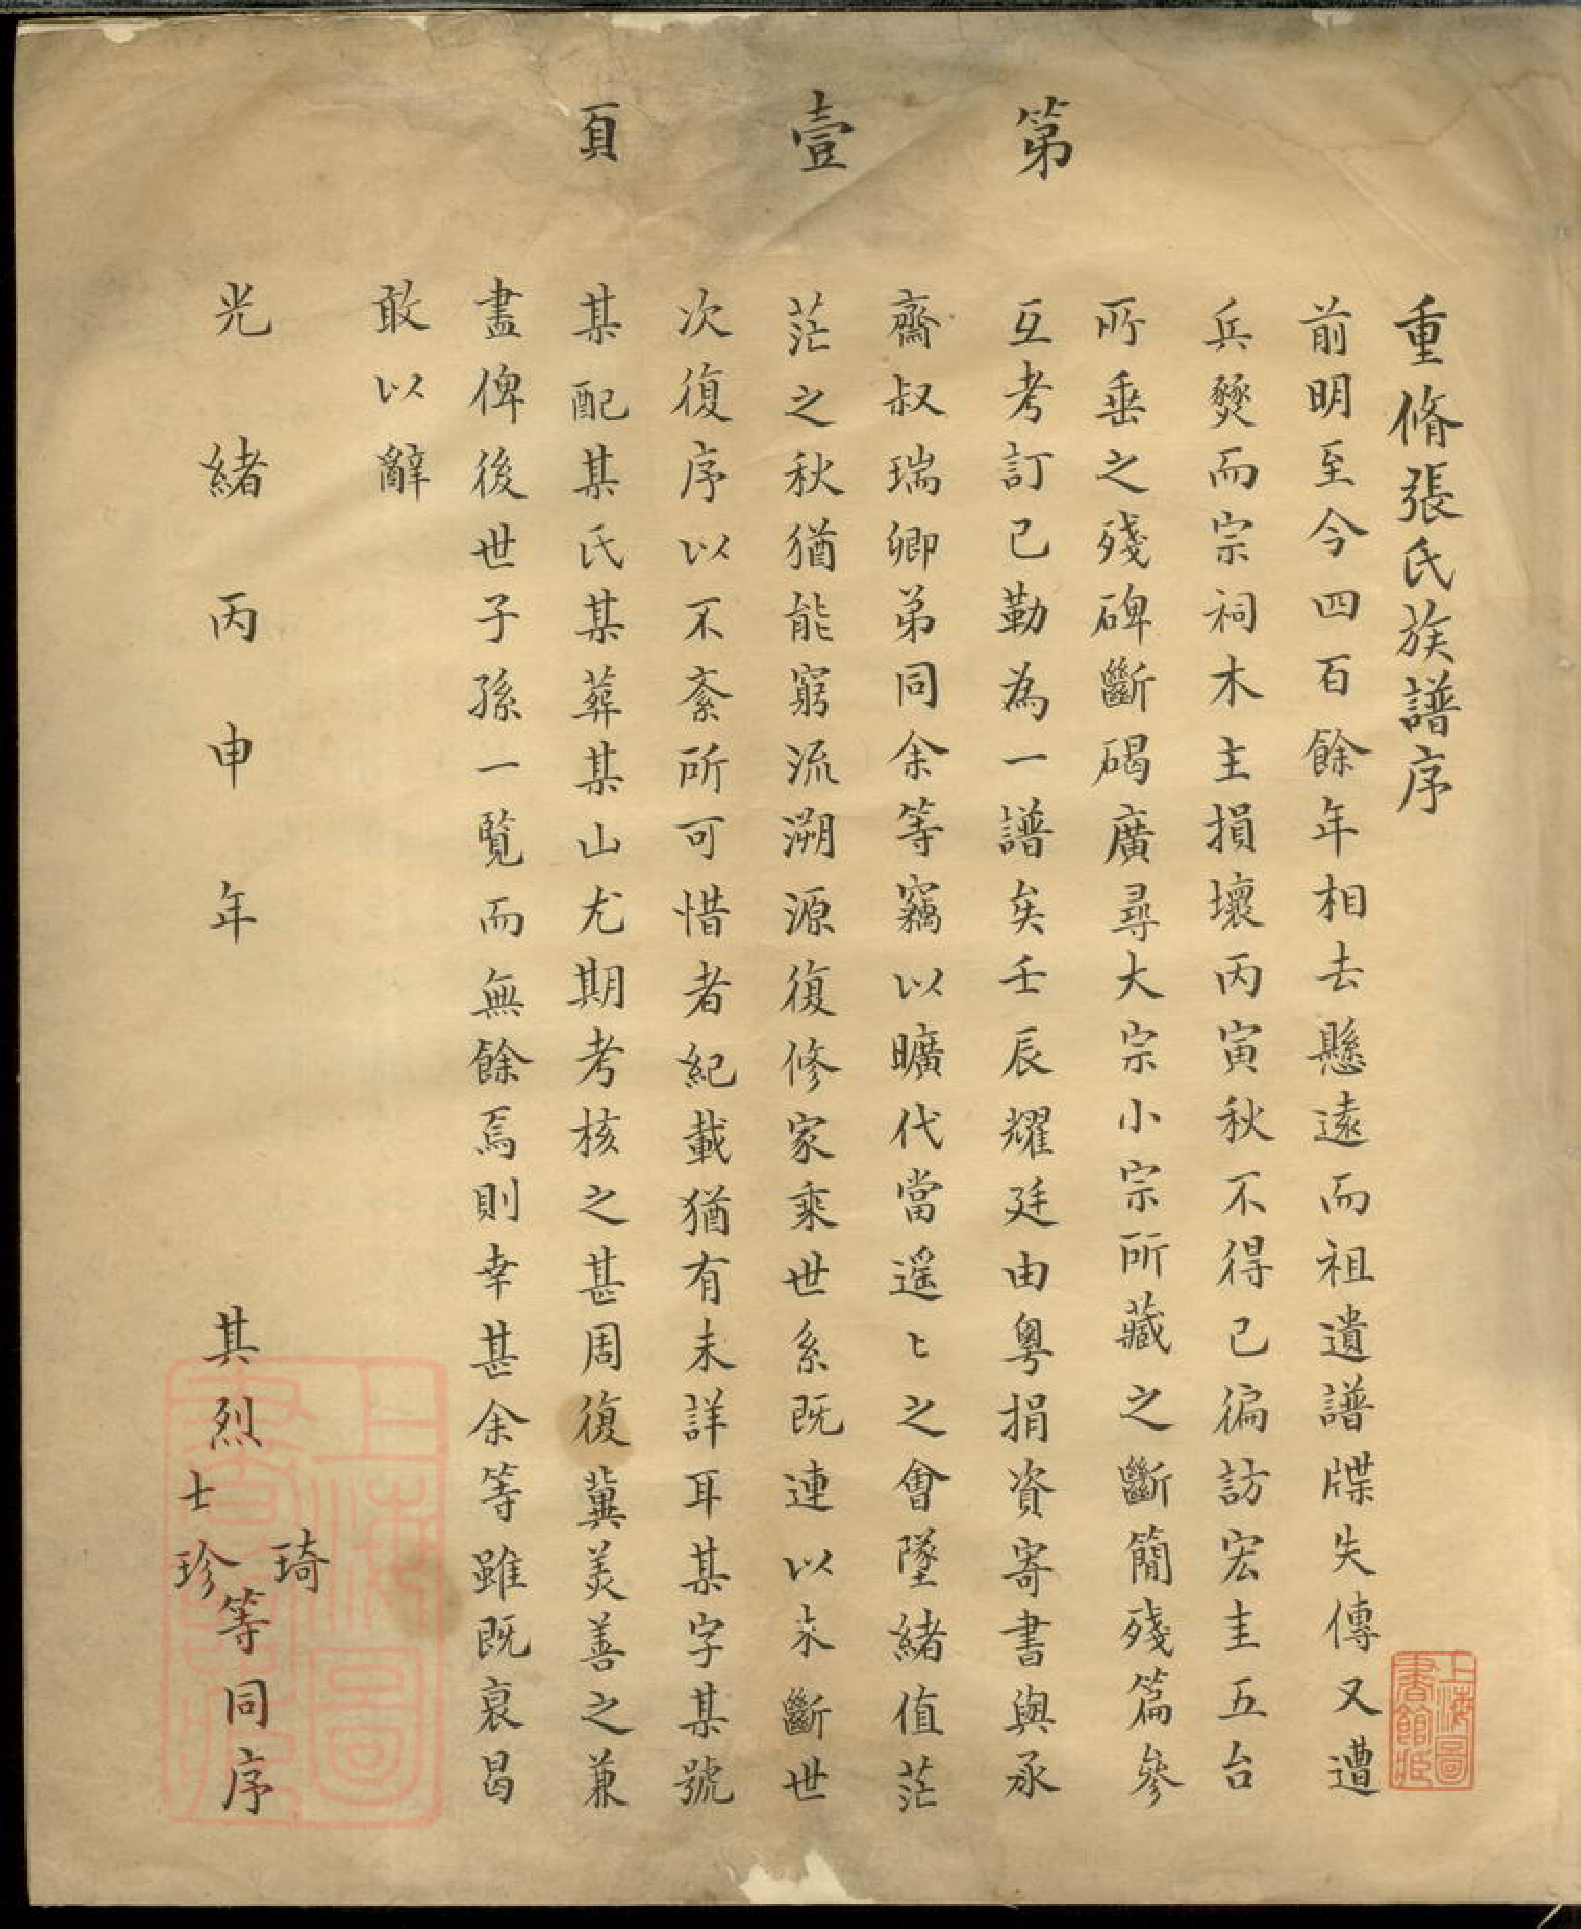 第壹頁
重脩張氏族譜序
前明至今四百餘年相去懸遠而祖遺譜牒失傳又遭
兵燹而宗祠木主損壞丙寅秋不得已徧訪宏圭五台
所垂之殘碑斷碣廣尋大宗小宗所藏之斷簡殘篇參
互考訂已勤為一譜矣壬辰耀廷由粵捐資寄書與承
齋叔瑞卿弟同余等竊以曠代當遥〻之會墜緒值茫
茫之秋猶能窮流溯源復修家乘世系既連以未斷世
次復序以不紊所可惜者紀載猶有未詳耳某字某號
某配某氏某葬某山尤期考核之甚周復冀美善之兼
盡俾後世子孫一覽而無餘焉則幸甚余等雖既衰曷
敢以辭
光緒丙申年
其烈士琦珍等同序
上海圖書館藏
上海圖書館藏